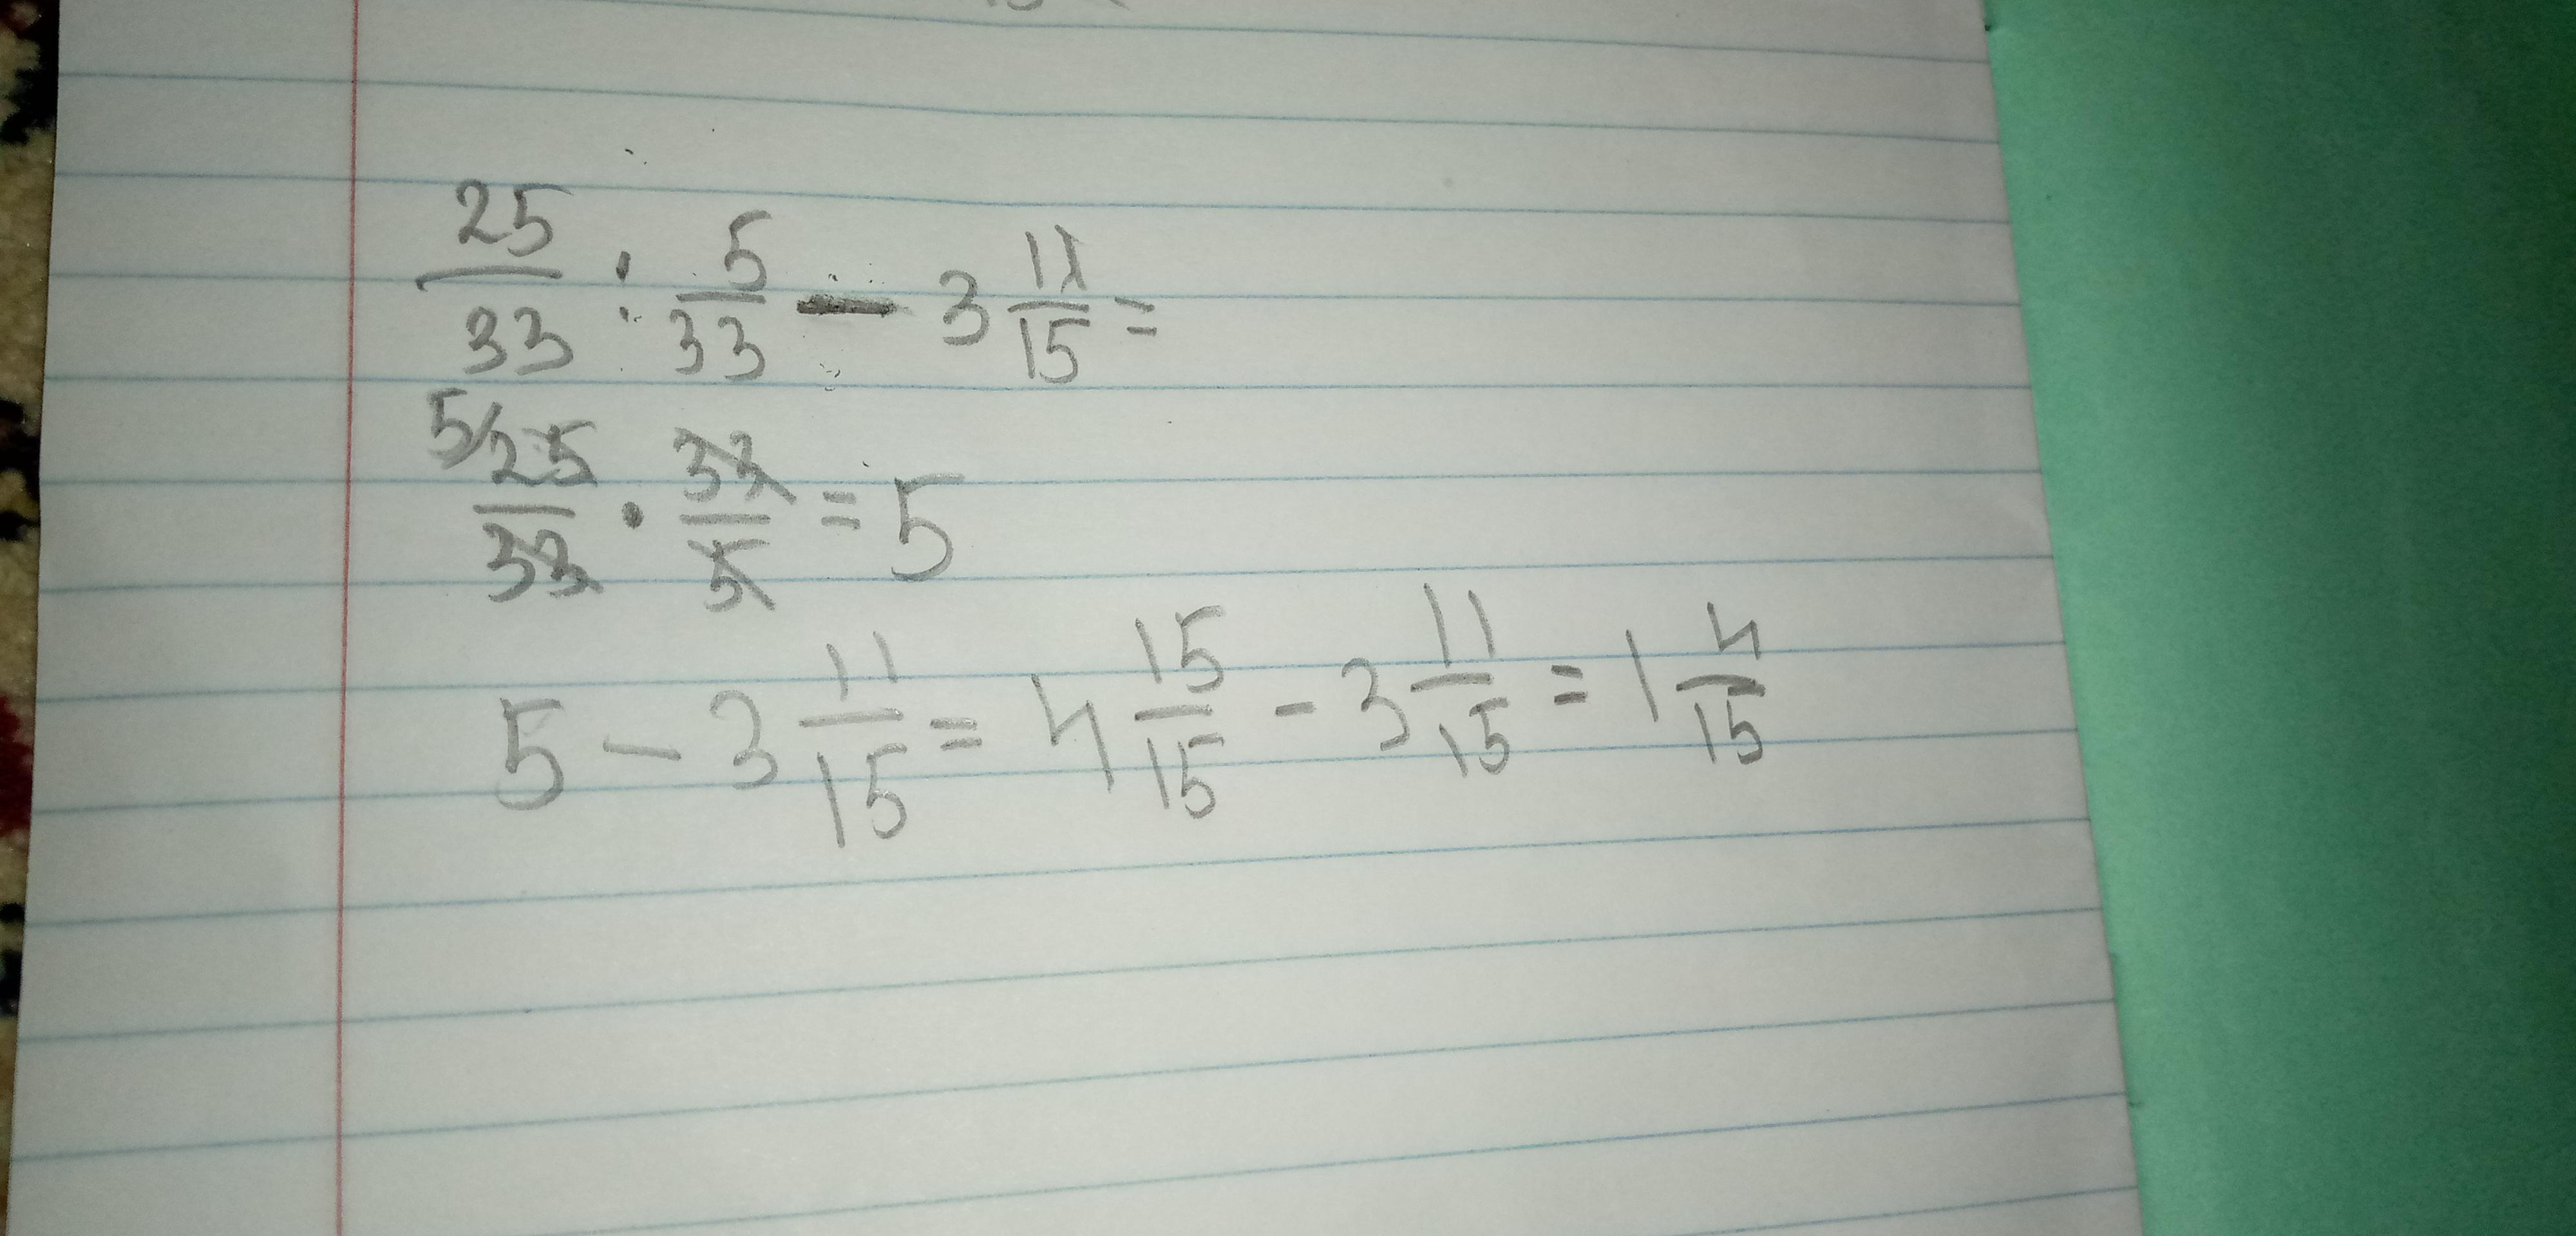 25/33 : 5/33 — 3 11/15 =
5/ 25/33 · 33/5 = 5
5 - 3 11/15 = 4 15/15 - 3 11/15 = 1 4/15